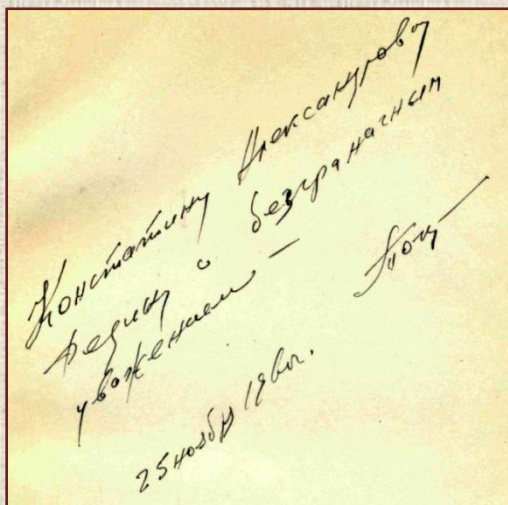 Константину Александрову
Федину с безграничным
уважением —
25 ноября 1960г.